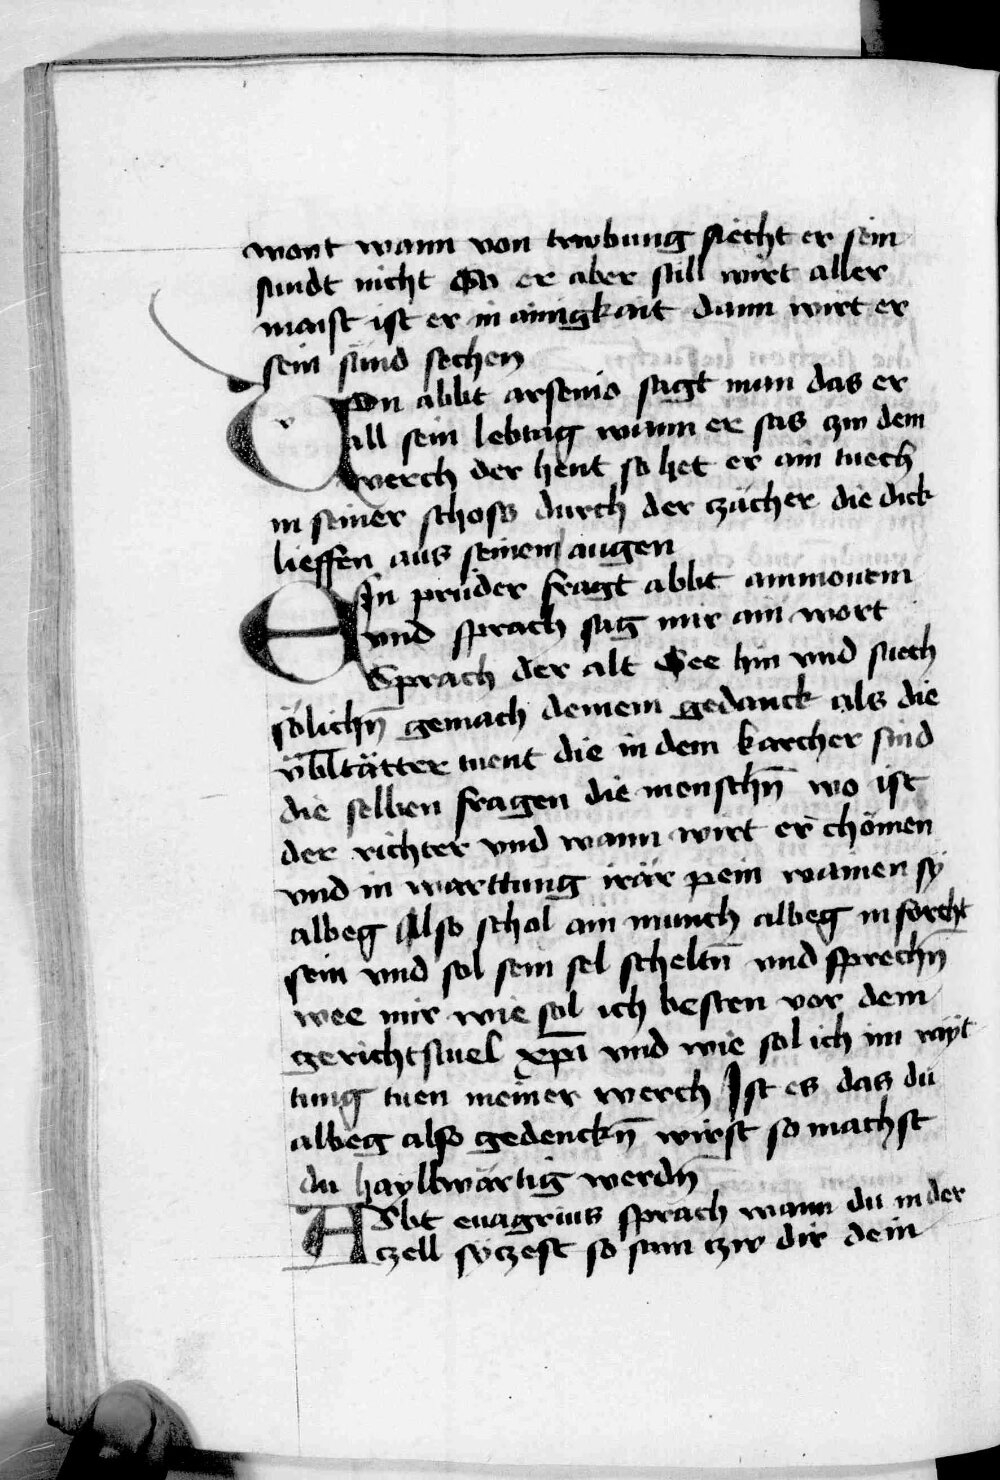 wont wann von trwbung siecht er sein
sundt nicht So er aber still wirt aller
maist ist er in ainigkait dann wirt er
sein sünd sechen
Von abbt arsenio sagt man das er
all sein lebtag wann er sas czw dem
werch der hent so het er ain tuech
in seiner schoss durch der czächer die dick
lieffen aus seinem augen
Ein pruder fragt abbt ammonem
vnd sprach sag mir ain wort
Sprach der alt Gee hin vnd suech
sölichn̄ gemach deinem gedanck als die
v̈bltätter tuent die in dem karcher sind
die selben fragen die menschn̄ wo ist
der richter vnd wann wirt er chömen
vnd in warttung irär pein wainen sy
albeg Also schol ain munch albeg in forcht
sein vnd sol sein sel scheltn̄ vnd sprechn̄
wee mir wie sol ich besten vor dem
gerichtstuel xp̄i vnd wie sol ich im rayt
tung tuen meiner werch Ist es das du
albeg also gedenckn̄ wirst so machst
du haylbwärtig werdn̄
Abbt euagrius sprach wann du in der
czell syczest so sam czw dir dein